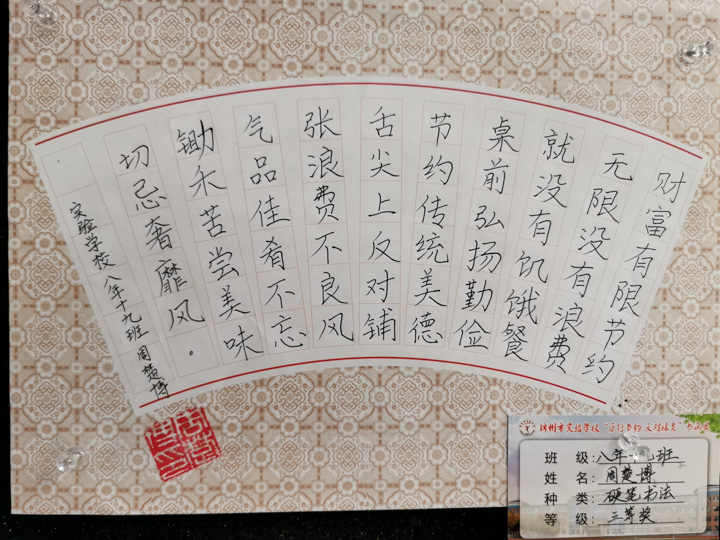 财富有限节约
无限没有浪费
就没有饥饿餐
桌前弘扬勤俭
节约传统美德
舌尖上反对铺
张浪费不良风
气品佳肴不忘
锄禾苦尝美味
切忌奢靡风。
实验学校八年十九班周楚博
锦州市实验学校
班级:八年 班
姓名:周楚博
种类:硬笔书法
等级:三等奖